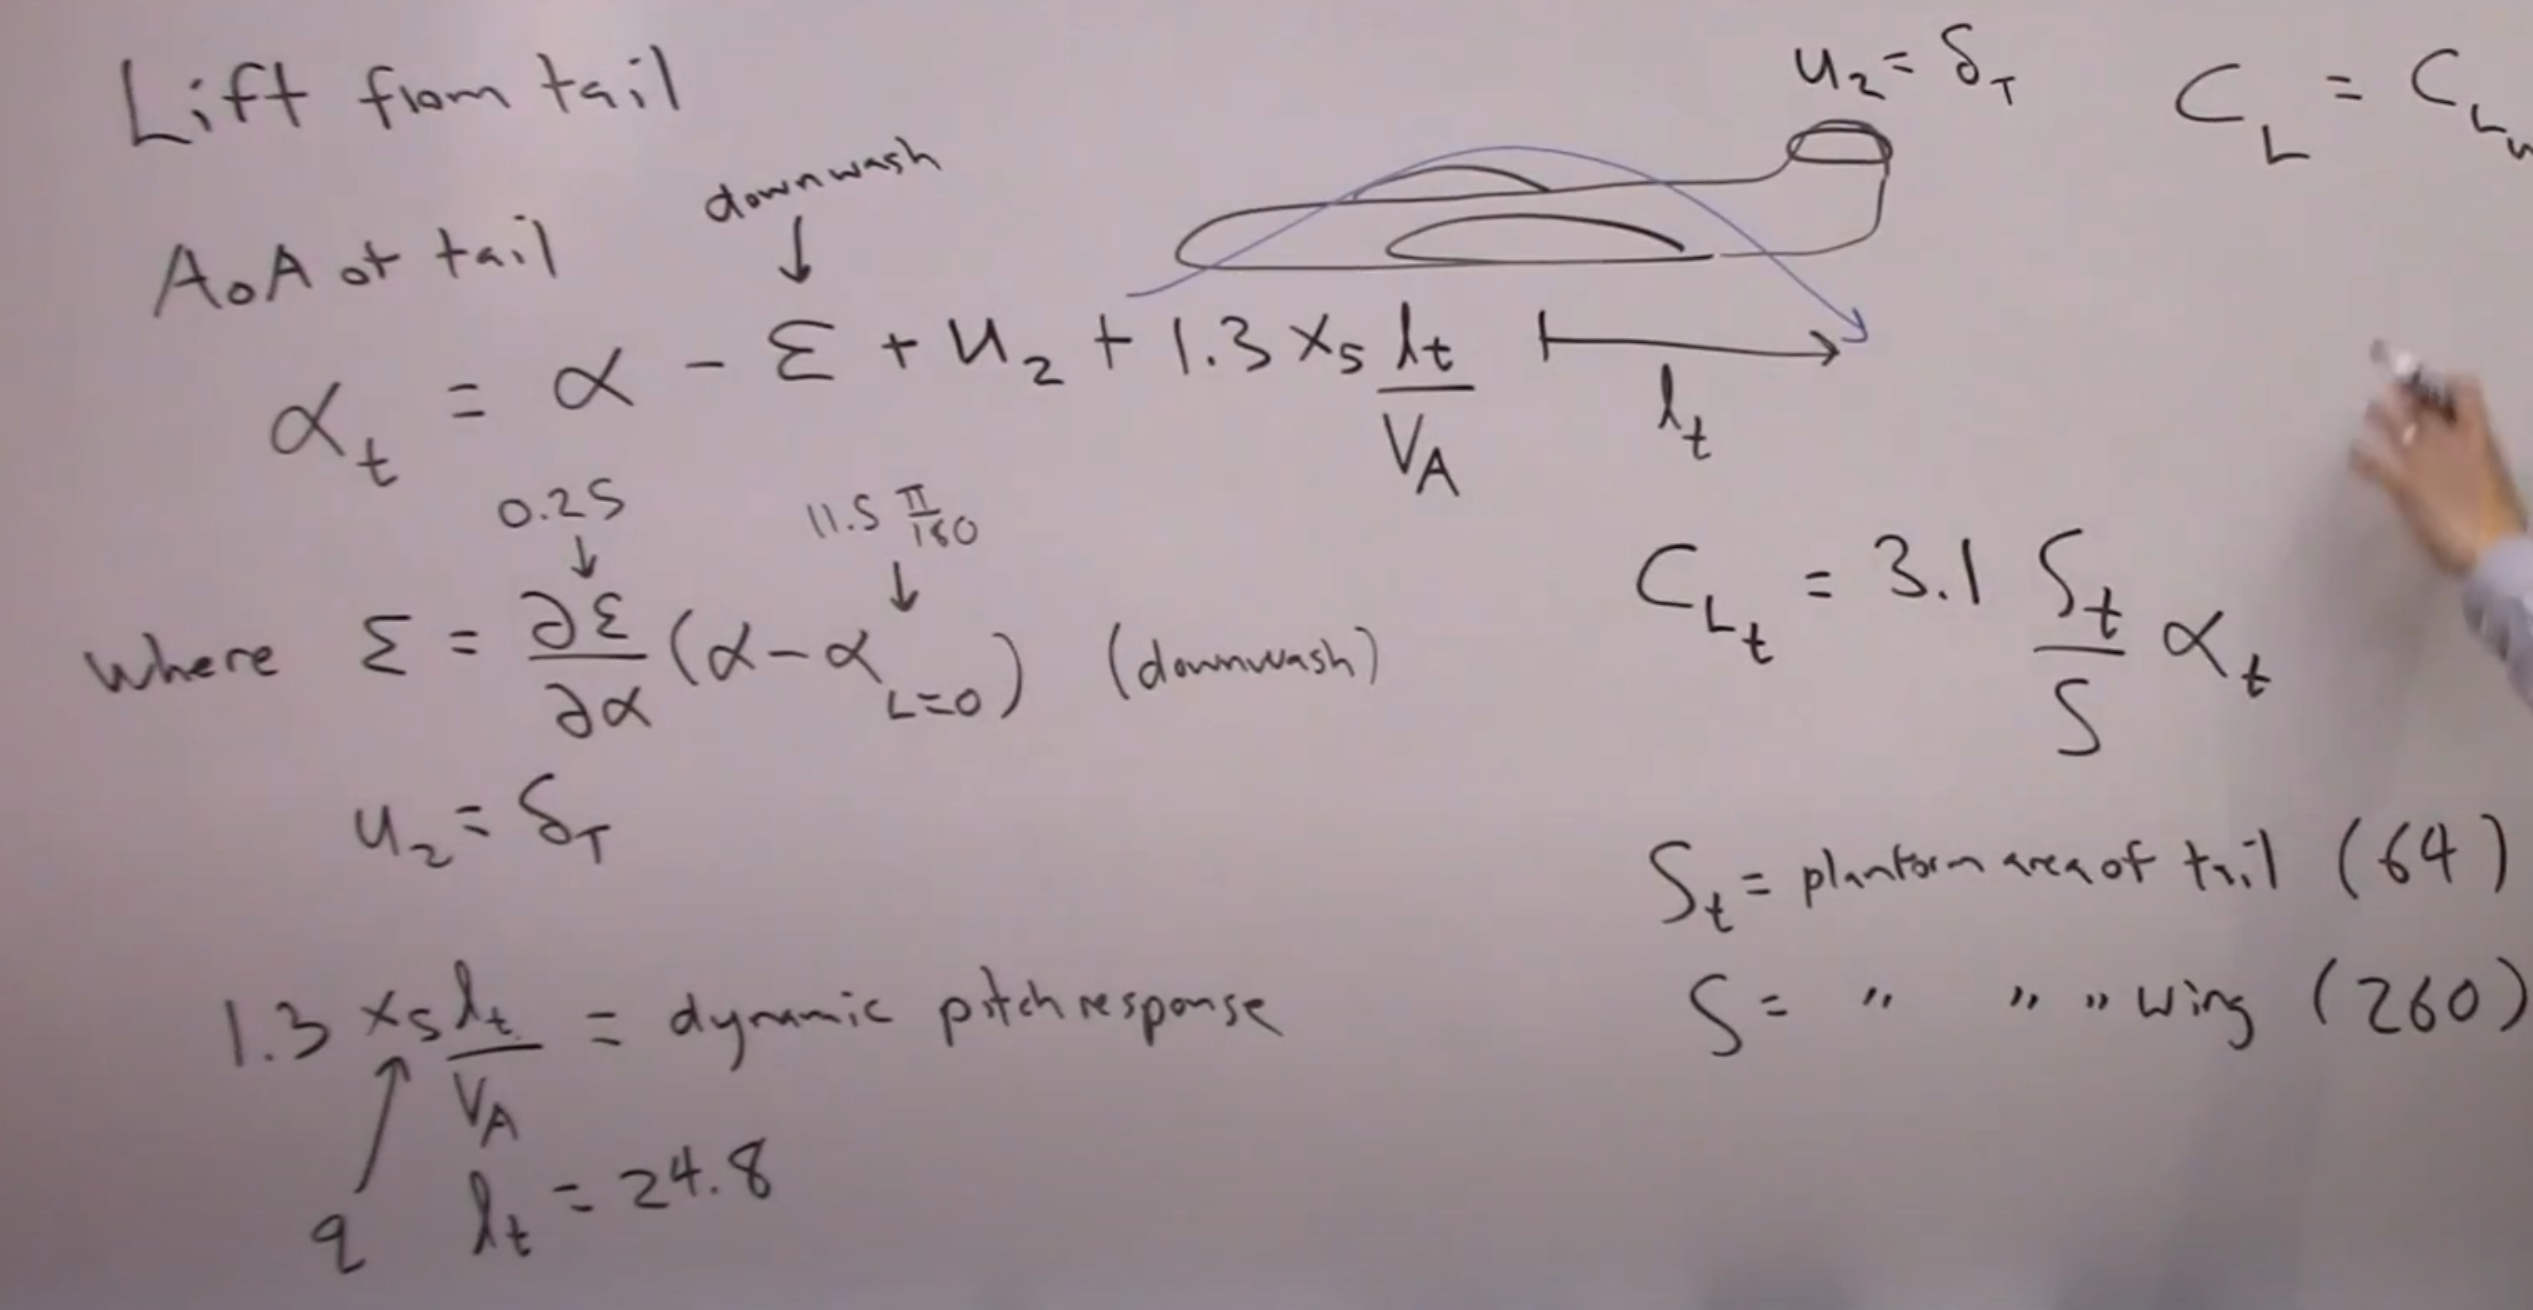 Lift from tail
downwash
↓
AoA at tail
α_t = α - ε + u_2 + 1.3 x_5 l_t / V_A
0.25
↓
11.5 π/180
↓
where ε = ∂ε/∂α (α - α_L=0) (downwash)
u_2 = δ_T
1.3 x_5 l_t / V_A = dynamic pitch response
q
l_t = 24.8
u_2 = δ_T
l_t
C_L = C_L_w
C_L_t = 3.1 S_t/S α_t
S_t = planform area of tail (64)
S = " " " wing (260)